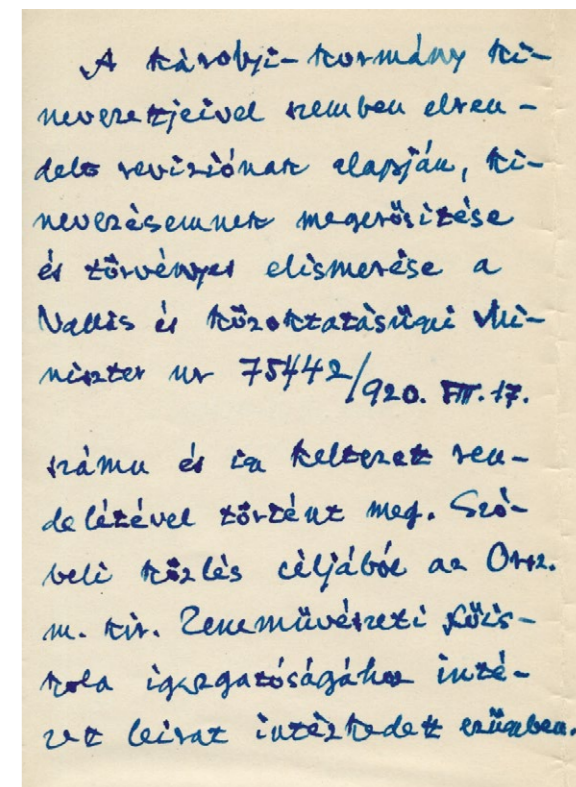 A Károlyi-kormány ki-
nevezettjeivel szemben elren-
delt reviziónak alapján, ki-
nevezésemnek megerősitése
és törvényes elismerése a
Vallás és közoktatásügyi Mi-
niszter ur 75442/920. VIII. 17.
számu és
keltezett ren-
deletével történt meg. Szó-
beli közlés céljából az Orsz.
m. kir. Zeneművészeti Főis-
kola igazgatóságához inté-
zett leirat intézkedett ezügyben.